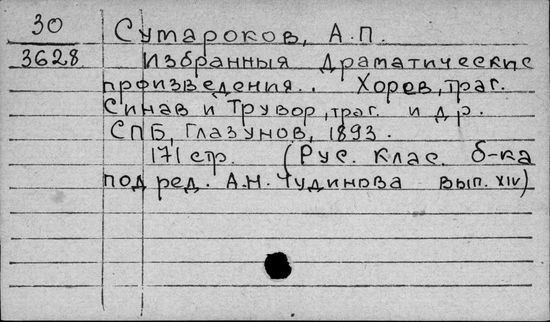 30 Сутароков, А.П.
3628 Избранныя драматические
произведения.. Хорев, траг.
Синав и Трувор, траг. и др.
СПБ, Глазунов, 1893.
171 стр. (Рус. клас. б-ка
под ред. А.Н. Чудинова вып. XIV)